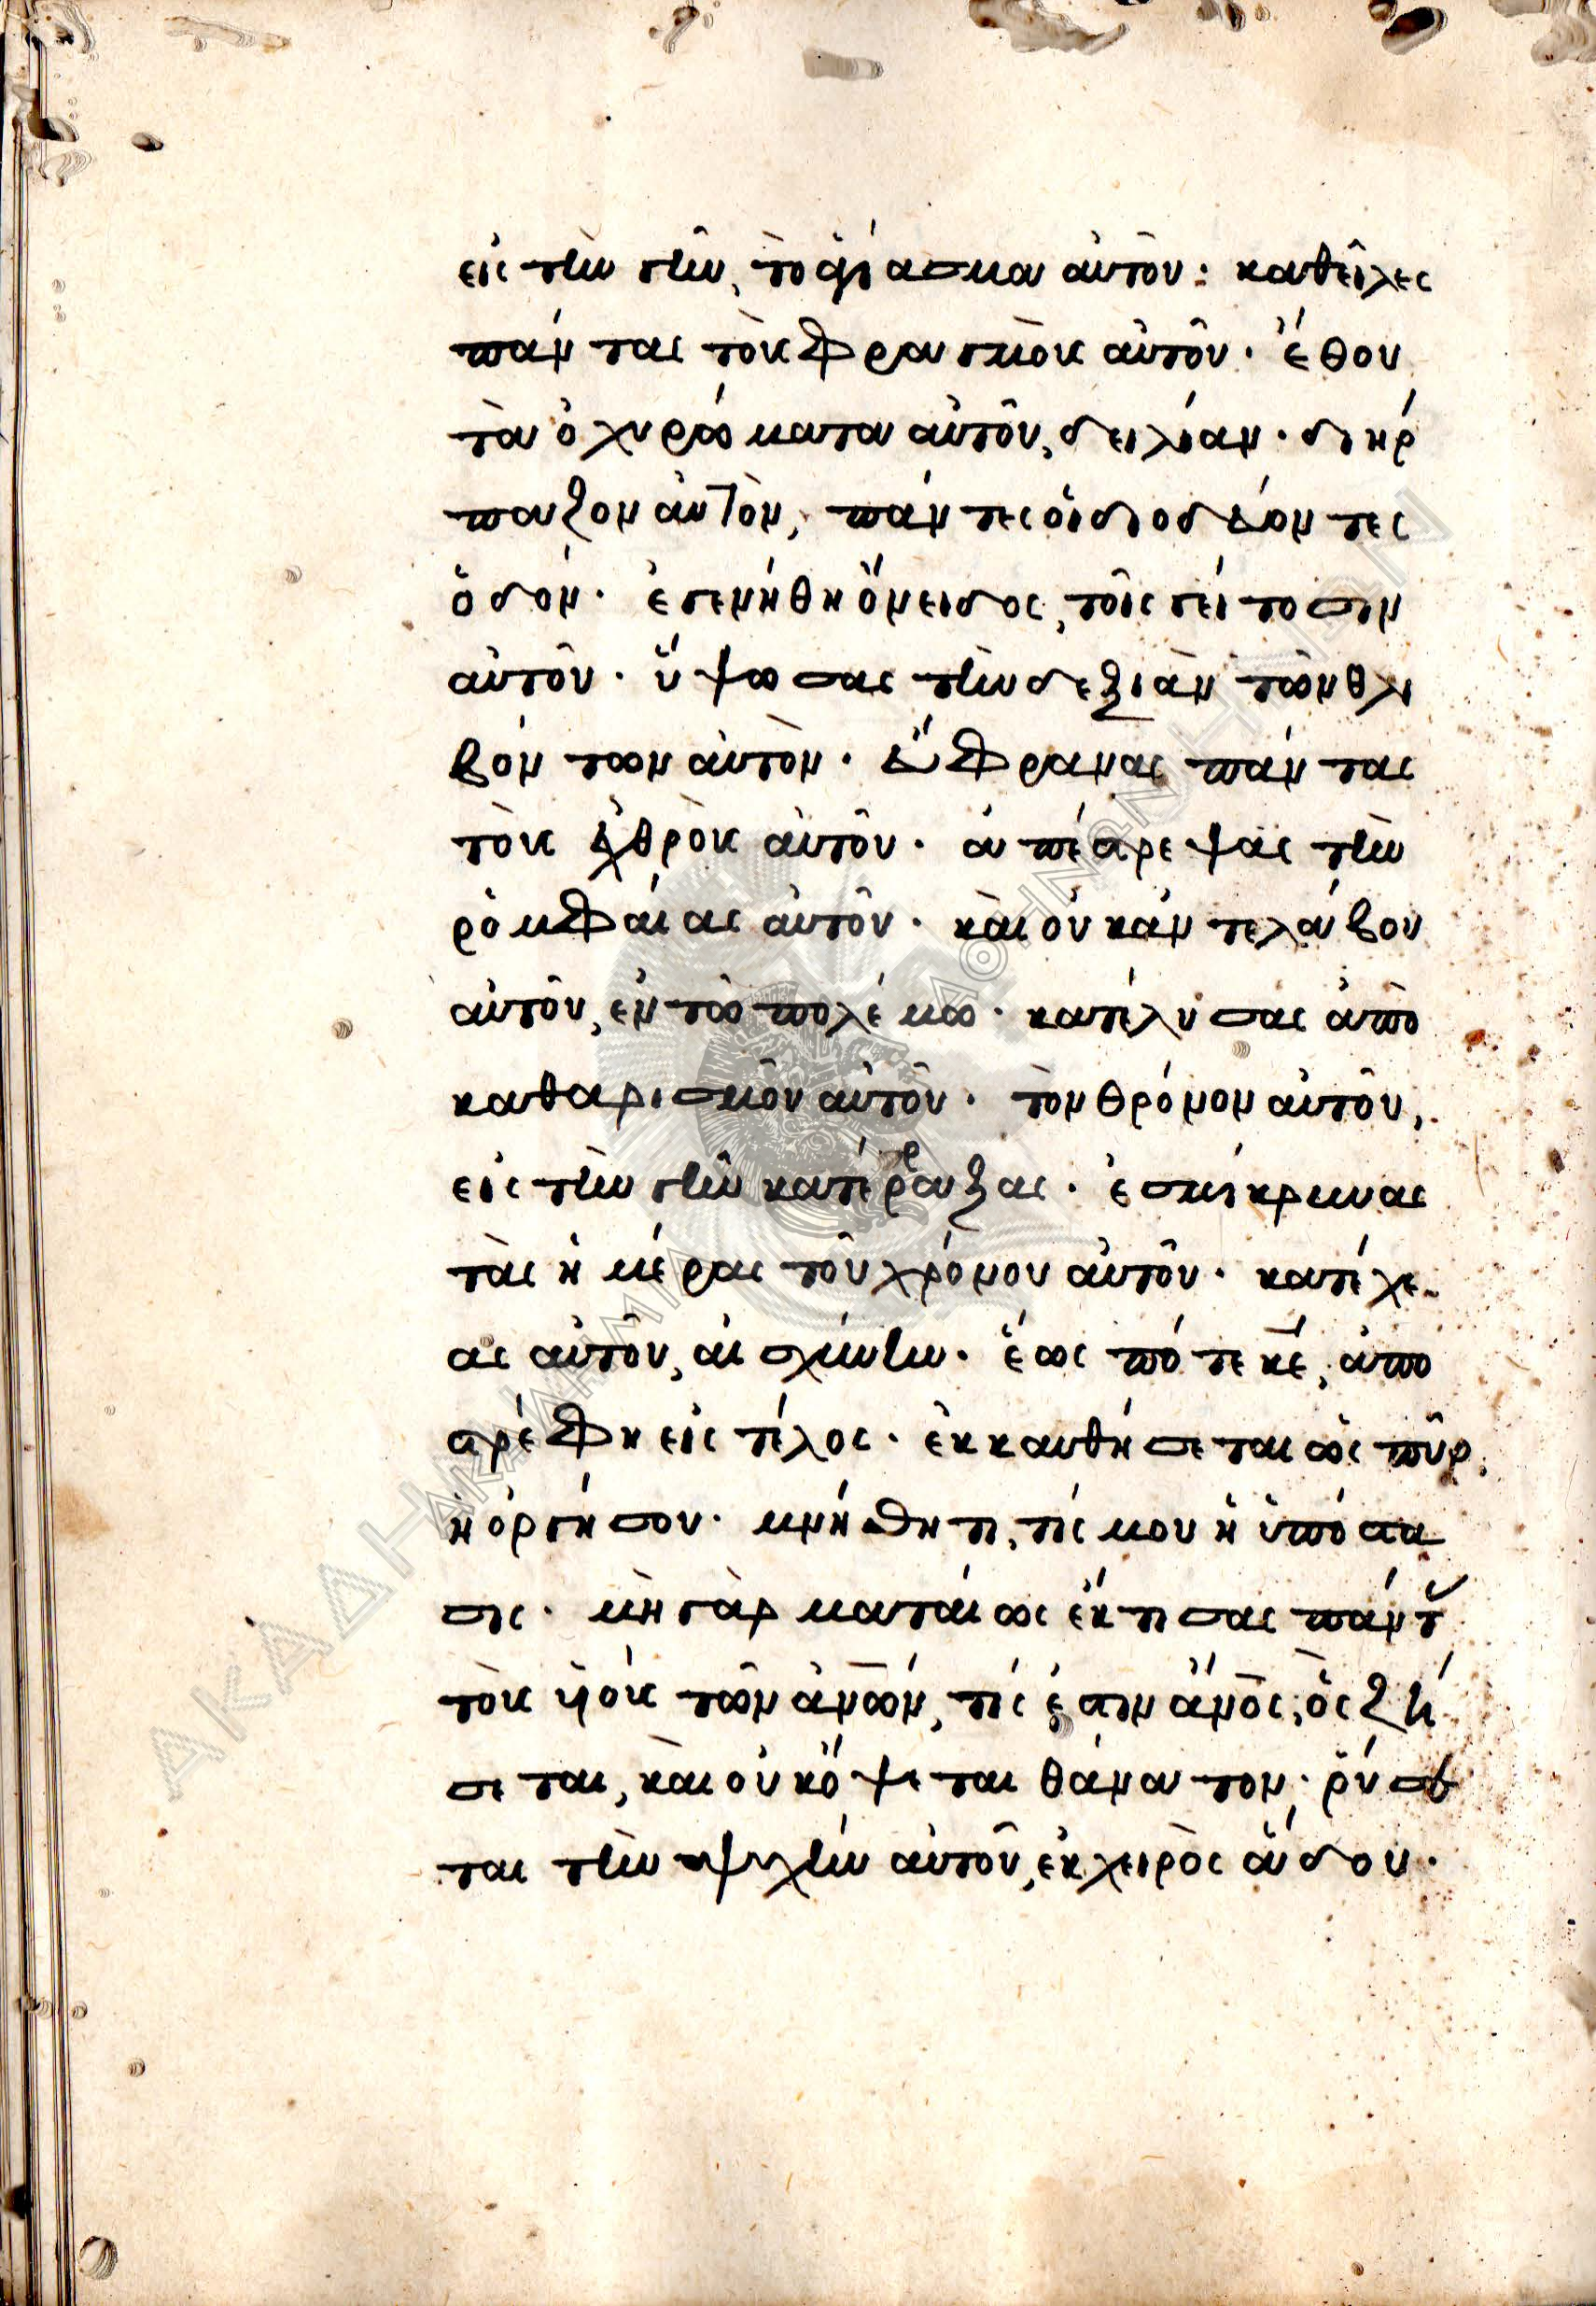 εἰς τὴν γῆν, τὸ ἁγίασμα αὐτοῦ· καθεῖλες
πάντας τοὺς φραγμοὺς αὐτοῦ· ἔθου
τὰ ὀχυρώματα αὐτοῦ, δειλίαν· διήρ
παζον αὐτὸν, πάντες οἱ διοδεύοντες
ὁδόν· ἐγενήθη ὄνειδος, τοῖς γείτοσιν
αὐτοῦ· ὕψωσας τὴν δεξιὰν τῶν θλι
βόντων αὐτὸν· εὔφρανας πάντας
τοὺς ἐχθροὺς αὐτοῦ· ἀπέστρεψας τὴν
ρομφαίας αὐτοῦ· καὶ οὐκ ἀντελάβου
αὐτοῦ, ἐν τῶ πολέμω· κατέλυσας ἀπὸ
καθαρισμοῦ αὐτοῦ· τὸν θρόνον αὐτοῦ,
εἰς τὴν γῆν κατέρραξας· ἐσμίκρυνας
τὰς ἡμέρας τοῦ χρόνου αὐτοῦ· κατέχε
ας αὐτοῦ, αἰσχύνην· ἕως πότε κε, ἀπο
στρέφη εἰς τέλος· ἐκκαυθήσεται ὡς πῦρ
ἡ ὀργή σου· μνήσθητι, τίς μου ἡ ὑπόστα
σις· μὴ γὰρ ματαίως ἔκτισας πάντ
τοὺς υἱοὺς τῶν ἀνῶν, τίς ἐστιν ἄνος, ὃς ζή
σεται, καὶ οὐκ ὄψεται θάνατον· ῥύσε
ται τὴν ψυχὴν αὐτοῦ, ἐκ χειρὸς ἅδου·
ΑΚΑΔΗΜΙΑ ΑΘΗΝΩΝ